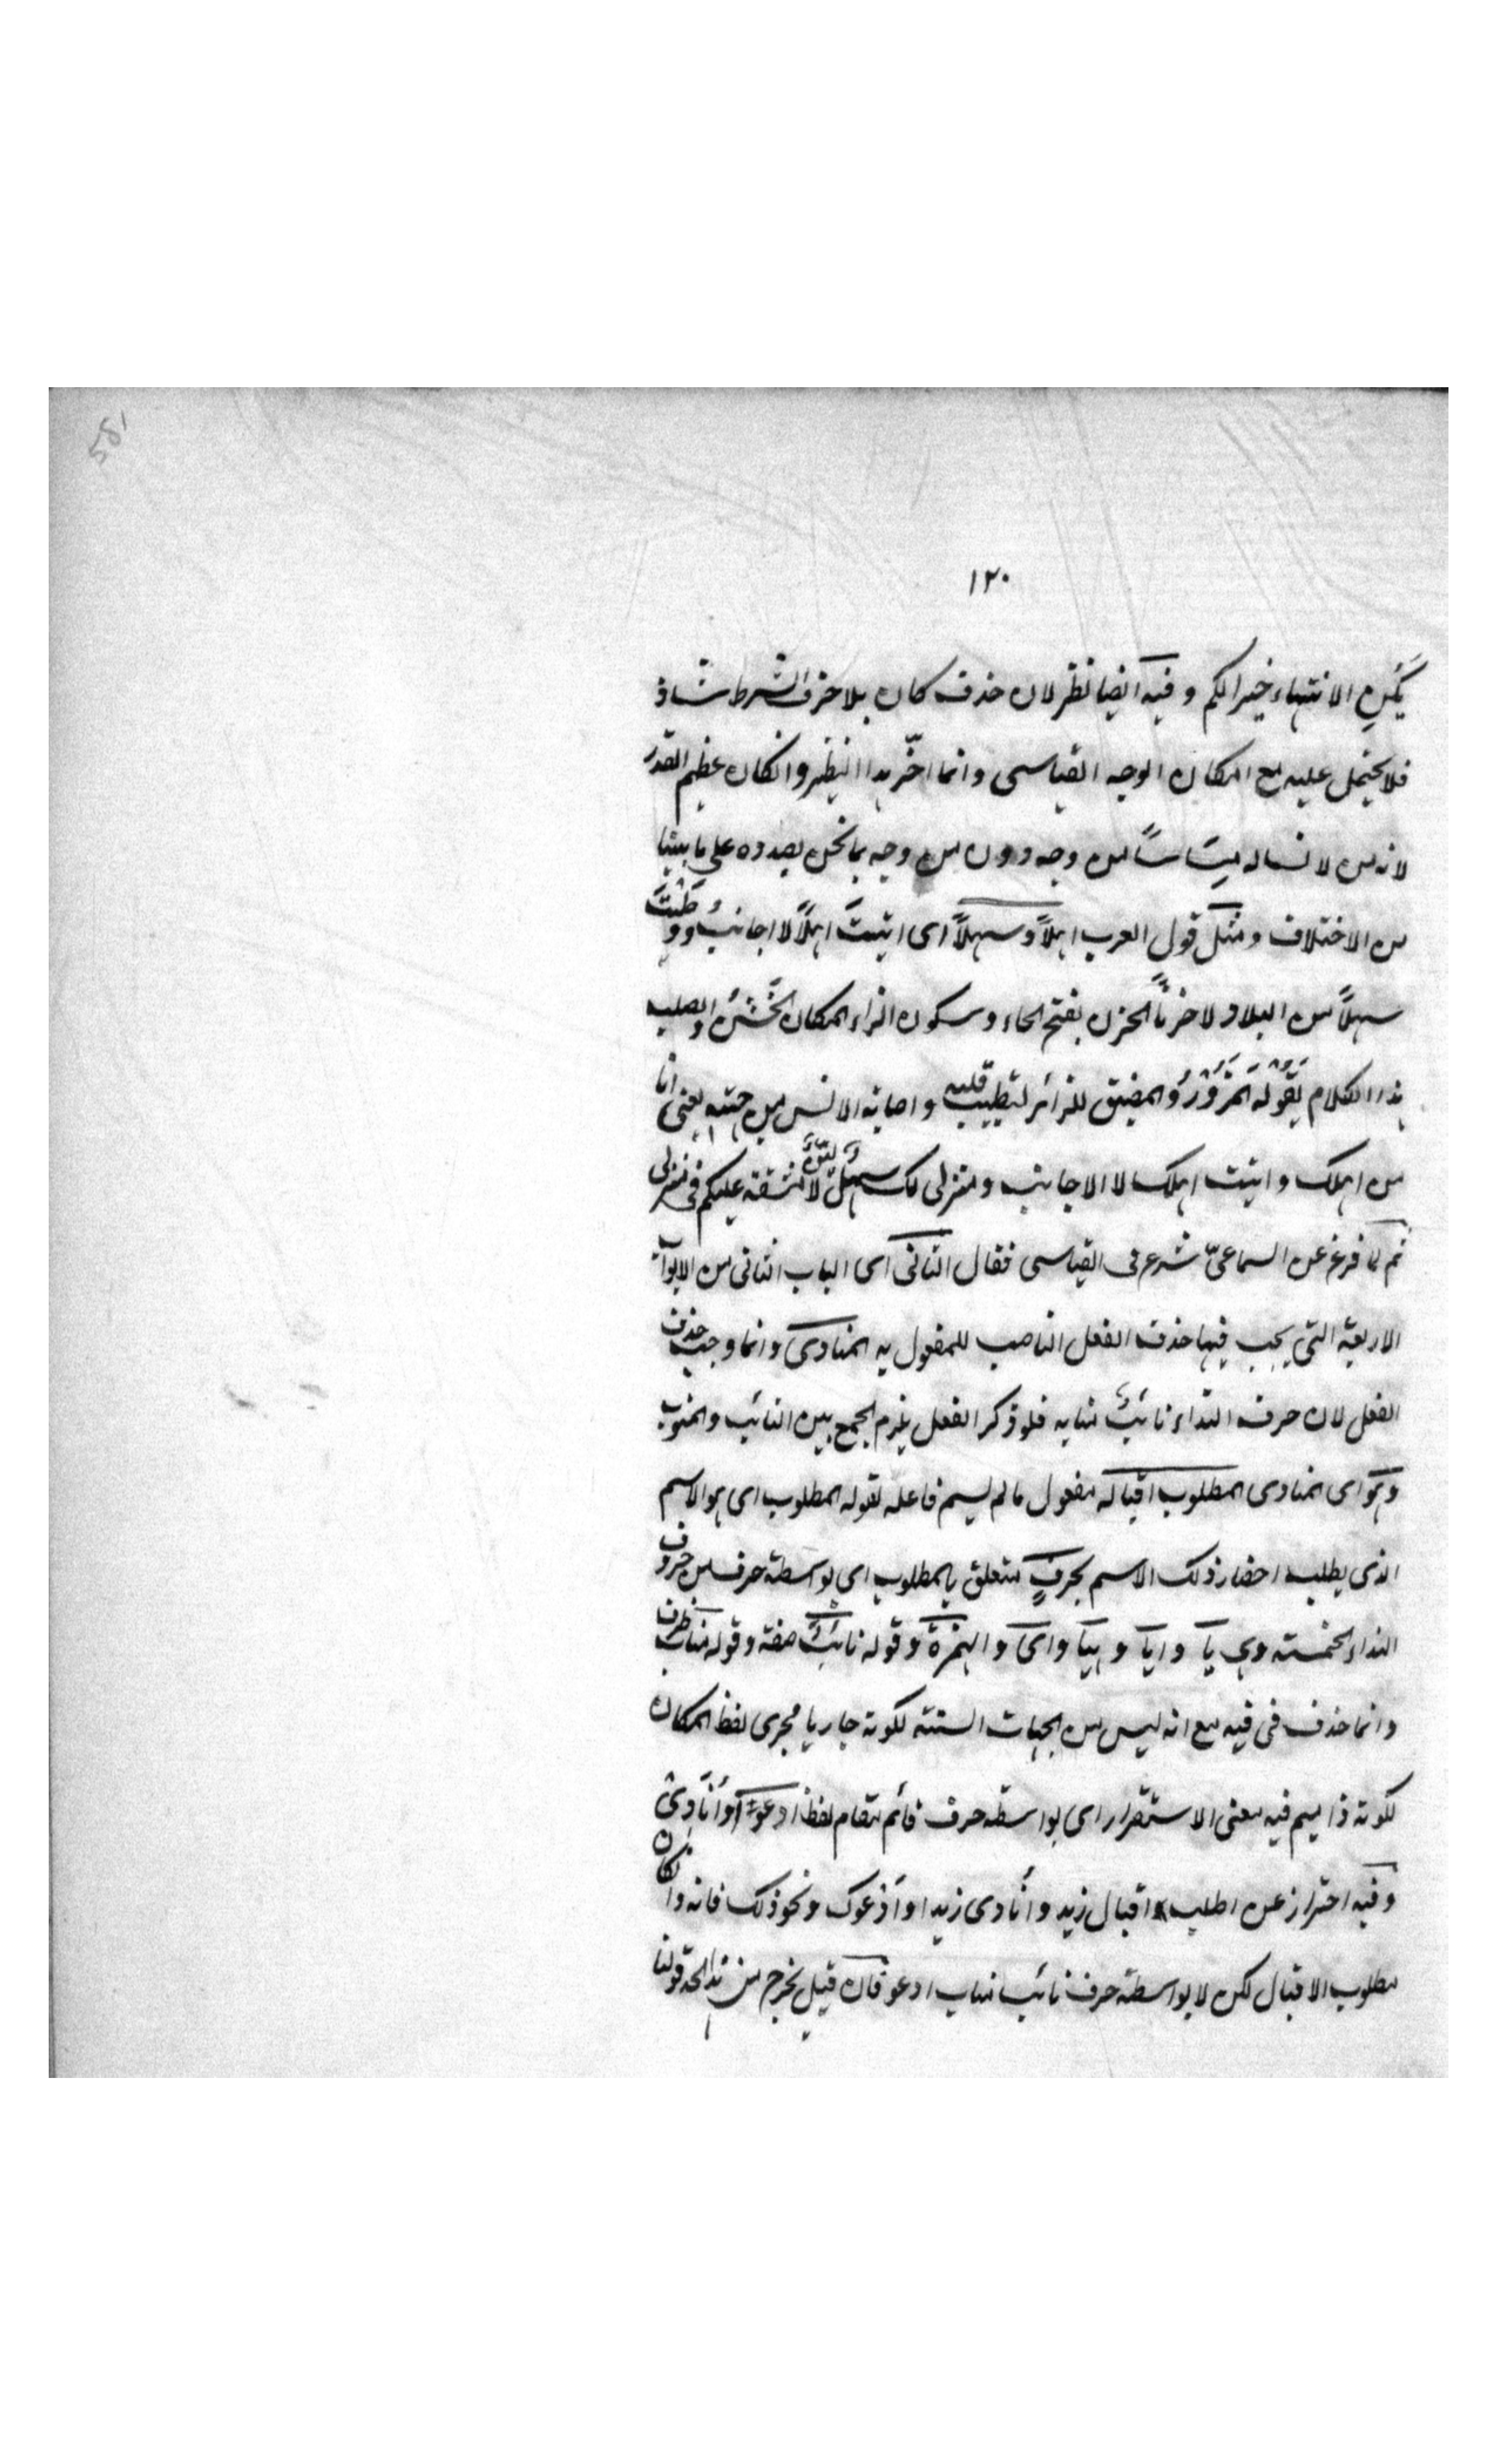 ١٢٠
يَكُنِ الانتهاء خيرا لكم وفيه ايضا نظر لان حذف كان بلا حرف الشرط شاذ
فلا يحتمل عليه مع امكان الوجه القياسى وانما اخّر هذا النظير وانكان عظيم القدر
لانه من لانسا له من وجه دون من وجه بما نحن بصدده على ما بينا
من الاختلاف ومثل قول العرب اهلاً وسهلاً اى اتيتَ اهلاً لا اجانب ووَطَئْتَ
سهلاً من البلاد لا حزناً الحزن بفتح الحاء وسكون الزاء المكان الخَشْنُ والصلب
هذا الكلام يقوله المَزُوْرُ والمضيف للزائر لتطييب قلبه واصابة الانس من جهته يعنى انا
من اهلك واتيت اهلك لا الاجانب ومنزلى لك سهل لا مشقة عليكم فى منزلى
ثم لما فرغ عن السماعىّ شرع فى القياسى فقال الثانى اى الباب الثانى من الابواب
الاربعة التى يجب فيها حذف الفعل الناصب للمفعول به المنادى وانما وجب حذف
الفعل لان حرف النداء نائبٌ منابه فلو ذكر الفعل يلزم الجمع بين النائب والمنوب
وهو اى المنادى المطلوب اقباله مفعول مالم يسم فاعله لقوله المطلوب اى هو الاسم
الذى يطلب احضار ذلك الاسم بحرفٍ متعلق بالمطلوب اى بواسطة حرف من حروف
النداء الخمسة وهى يا وايا وهيا واى والهمزة وقوله نائبٌ صفة وقوله مناب ظرف
وانما حذف فى فيه مع انه ليس من الجهات الستة لكونه جاريا مجرى لفظ المكان
لكونه ذا ميم فيه معنى الاستقرار اى بواسطة حرف قائم مقام لفظ ادعو او اُنَادِىْ
وفيه احتراز عن اطلب اقبال زيد واُنادى زيدا وادعوك ونحو ذلك فانه وان كان
مطلوب الاقبال لكن لا بواسطة حرف نائب مناب ادعو فان قيل يخرج من هذا الحد قولنا